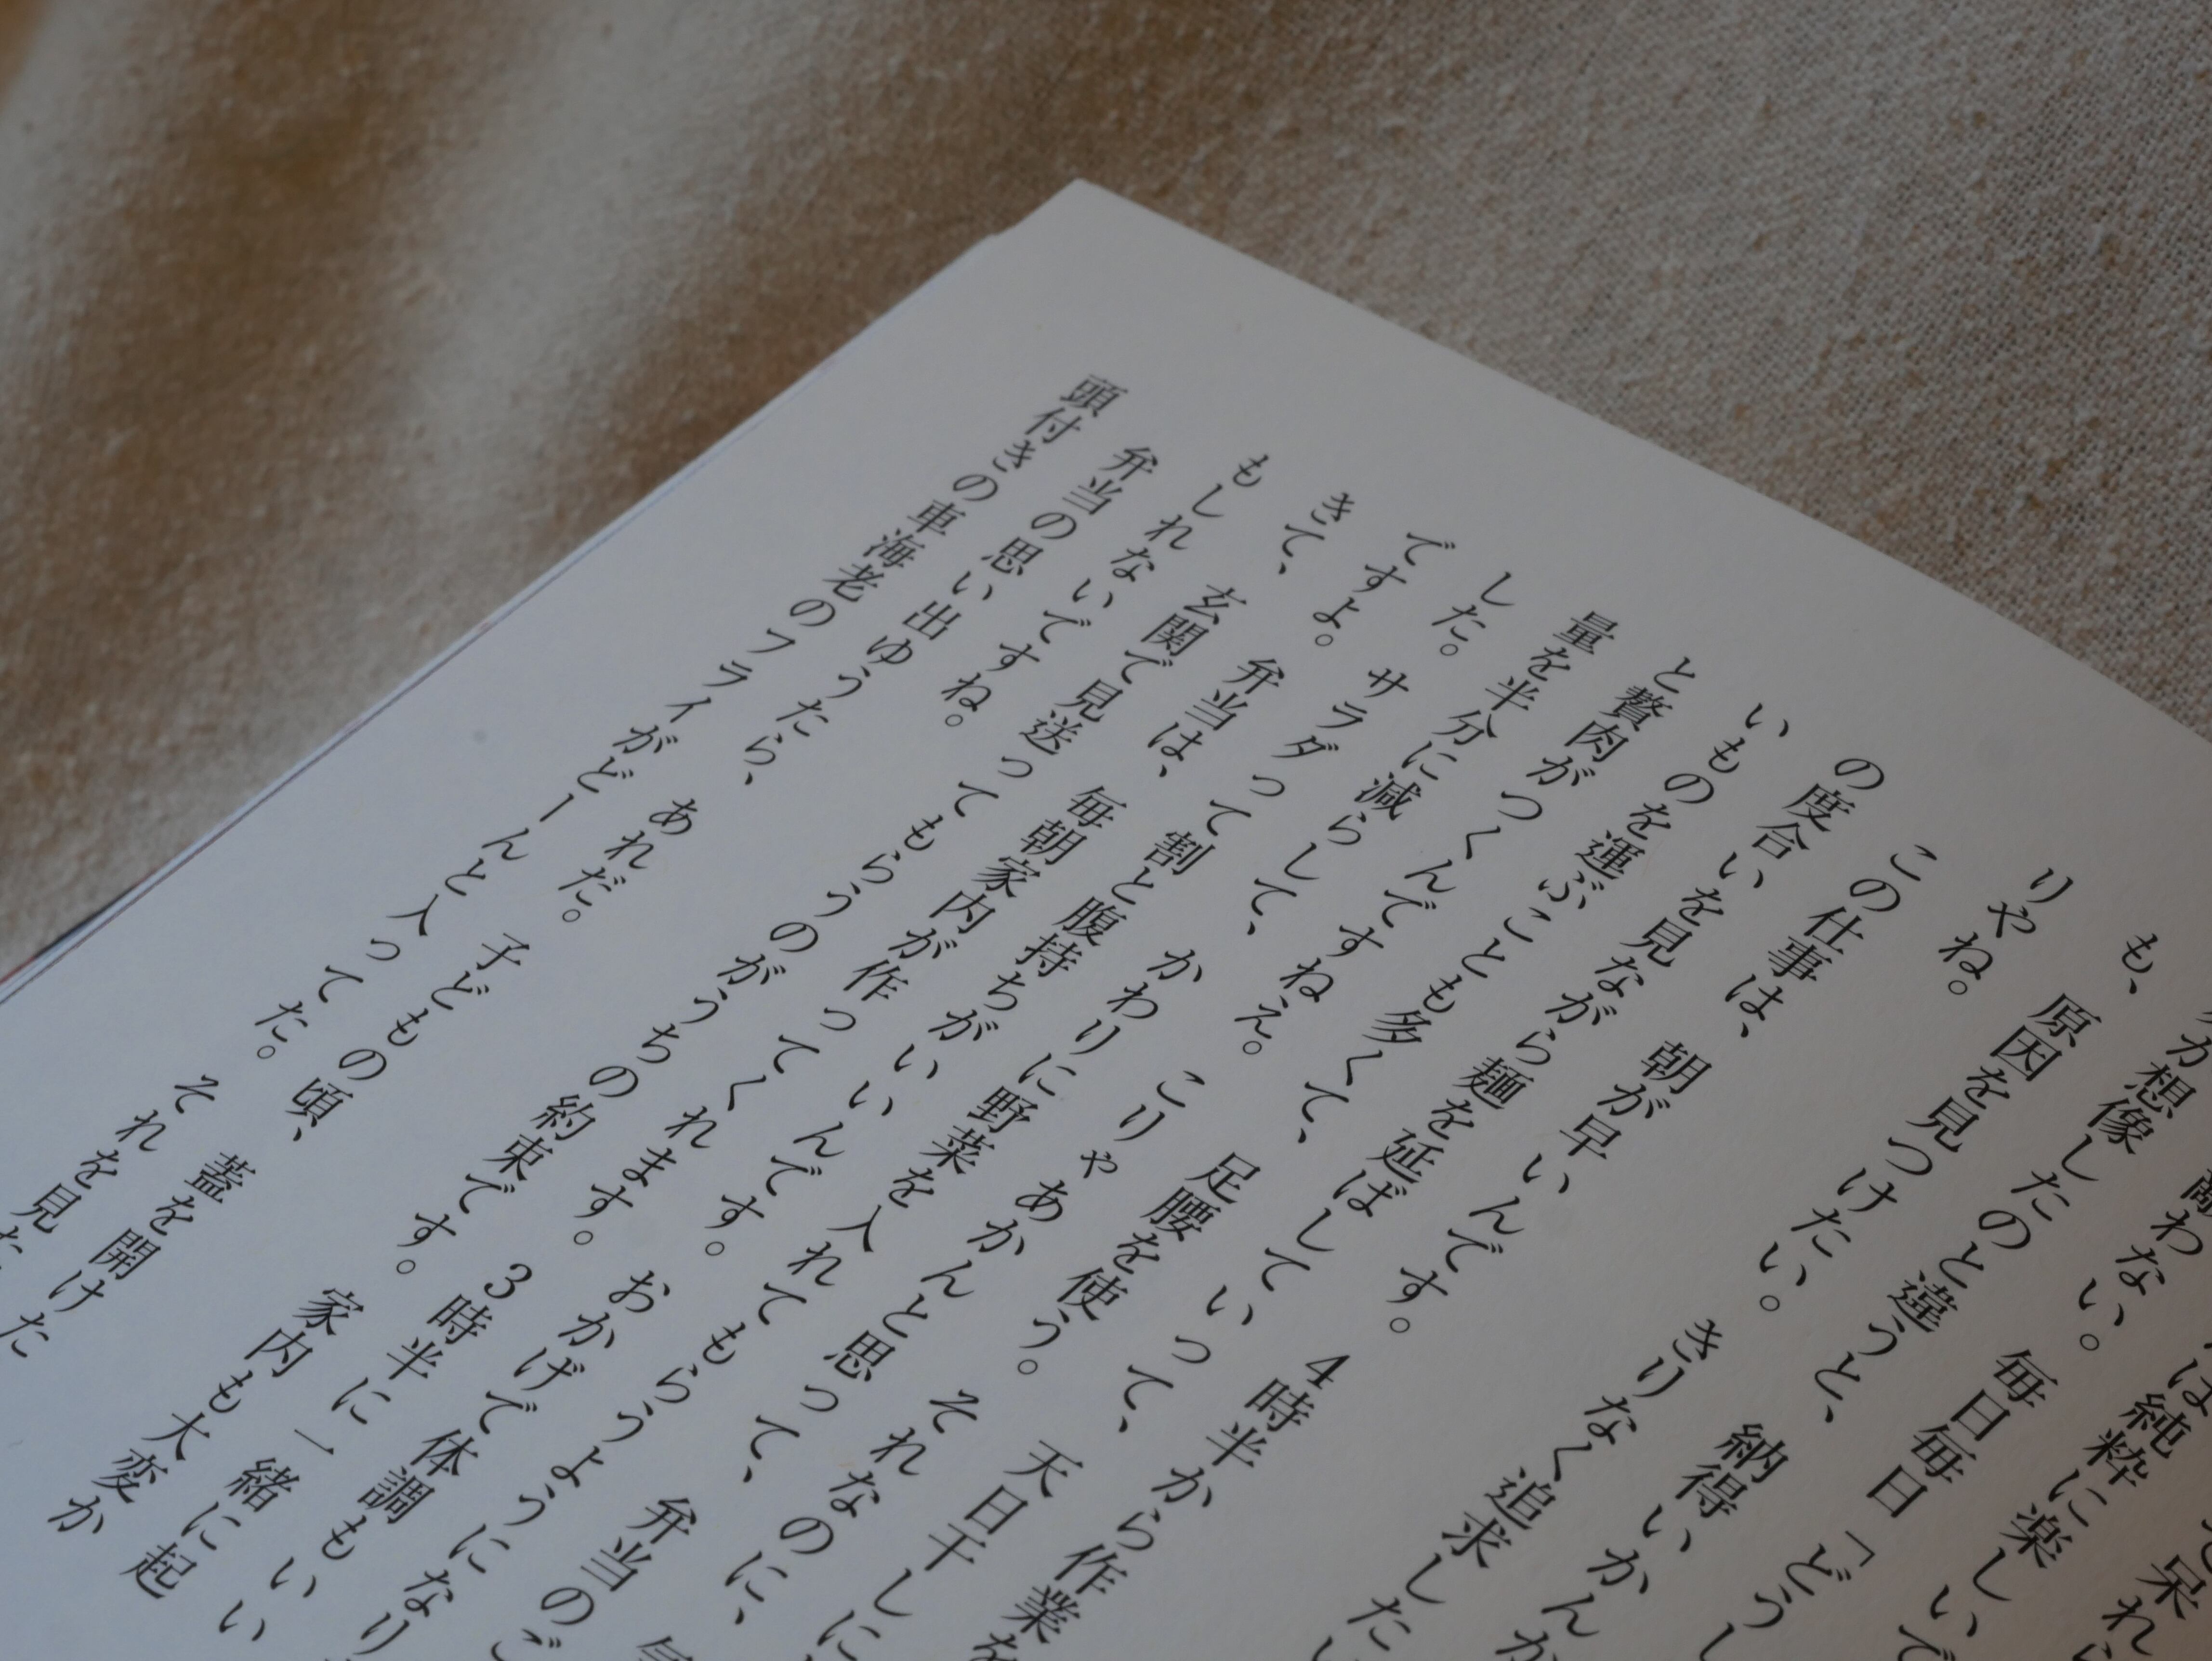 呆れら
は純粋に楽しいで
わない。毎日毎日「どうし
が想像したのと違うと、納得いかんか
も、原因を見つけたい。きりなく追求したい
りやね。
この仕事は、朝が早いんです。4時半から作業を
の度合いを見ながら麺を延ばしていって、天日干しに
いものを運ぶことも多くて、足腰を使う。それなのに、
と贅肉がつくんですねえ。こりゃあかんと思って、弁当のご
量を半分に減らして、かわりに野菜を入れてもらうようになり
した。サラダって割と腹持ちがいいんです。おかげで体調もいい
ですよ。弁当は、毎朝家内が作ってくれます。3時半に一緒に起
きて、玄関で見送ってもらうのがうちの約束です。家内も大変か
もしれないですね。
弁当の思い出ゆうたら、あれだ。子どもの頃、蓋を開けた
頭付きの車海老のフライがどーんと入ってた。それを見た